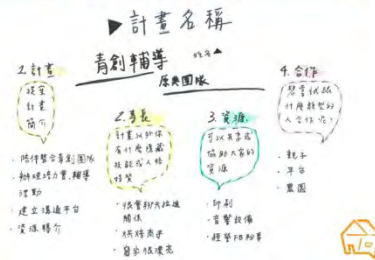 ▶計畫名稱
青創輔導 姓名▲
原典團隊
1.計畫
提案
計畫
簡介
・陪伴整合青創團隊
・辦理培力實輔導
活動
・建立溝通平台
・資源轉介
2.專長
計畫以外你
有什麼隱藏
技能或人格
特質
・很會粉夾拉進
關係
・烘焙高手
・留家很漂亮
3.資源
可以共享或
協助大家的
資源
・印刷
・音響設備
・經營FB粉專
4.合作
想嘗試跟
什麼類型的
人合作呢!
・親子
・平台
・農園